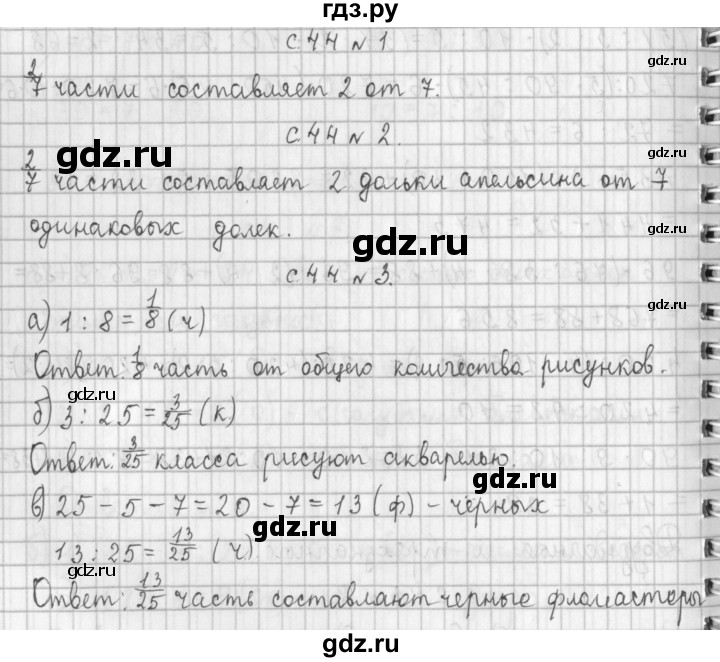 гдз.ру
с. 44 № 1.
2/7 части составляет 2 от 7.
с. 44 № 2.
2/7 части составляет 2 дольки апельсина от 7
одинаковых долек.
с. 44 № 3.
а) 1 : 8 = 1/8 (ч)
Ответ: 1/8 часть от общего количества рисунков.
б) 3 : 25 = 3/25 (к)
Ответ: 3/25 класса рисуют акварелью.
в) 25 - 5 - 7 = 20 - 7 = 13 (ф) - черных
13 : 25 = 13/25 (ч)
Ответ: 13/25 часть составляют черные фломастеры
gdz.ru
gdz.ru
gdz.ru
gdz.ru
gdz.ru
gdz.ru
gdz.ru
gdz.ru
gdz.ru
gdz.ru
gdz.ru
gdz.ru
gdz.ru